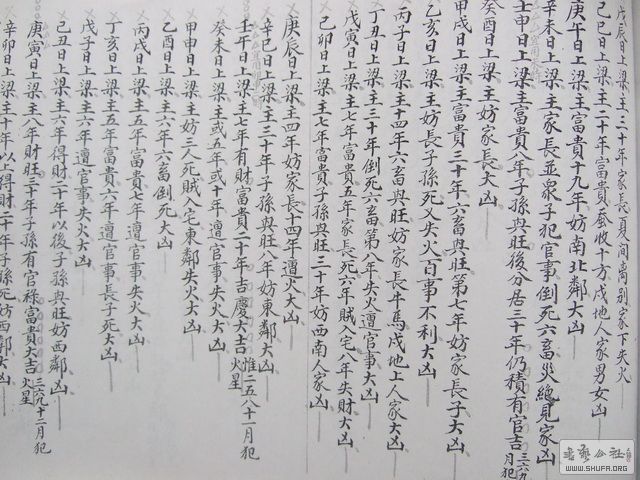 戊辰日上梁主三十年妨家長自间离别家下失火
己巳日上梁主二十年富貴蚕收十方戌地人家男女凶
庚午日上梁主富貴十九年妨南北鄰大凶
辛未日上梁主家長並衆子犯官事倒死六畜災絶見家凶
壬申日上梁主富貴八年子孫興旺後分居三十年仍積有官吉 三六九月犯
癸酉日上梁主妨家長大凶
甲戌日上梁主富貴三十年六畜興旺第七年妨家長子大凶
乙亥日上梁主妨長子孫死又失火百事不利大凶
丙子日上梁主十四年六畜興旺妨家長牛馬戌地上人家大凶
丁丑日上梁主三十年倒死六畜第八年失火遭官事大凶
戊寅日上梁主七年富貴五年家長死六年賊入宅八年失財大凶
己卯日上梁主七年富貴子孫興旺三十年妨西南人家凶
庚辰日上梁主四年妨家長十四年遭火大凶
辛巳日上梁主三十年子孫興旺八年妨東鄰大凶
壬午日上梁主七年有財富貴二十年吉慶大吉 惟二五八十一月犯火星
癸未日上梁主或五年或十年遭官事失火大凶
甲申日上梁主妨三人死賊入宅東鄰失火大凶
乙酉日上梁主六年六畜倒死大凶
丙戌日上梁主五年富貴七年遭官事大凶
丁亥日上梁主五年富貴六年遭官事長子死大凶
戊子日上梁主六年遭官事失火大凶
己丑日上梁主六年得財二十年以後子孫興旺妨西鄰凶
庚寅日上梁主八年財旺二十年子孫有官祿富貴大吉 三六九十二月犯火星
辛卯日上梁主十年以上得財二十年子孫死妨西鄰大凶
書藝公社
WWW.SHUFA.ORG